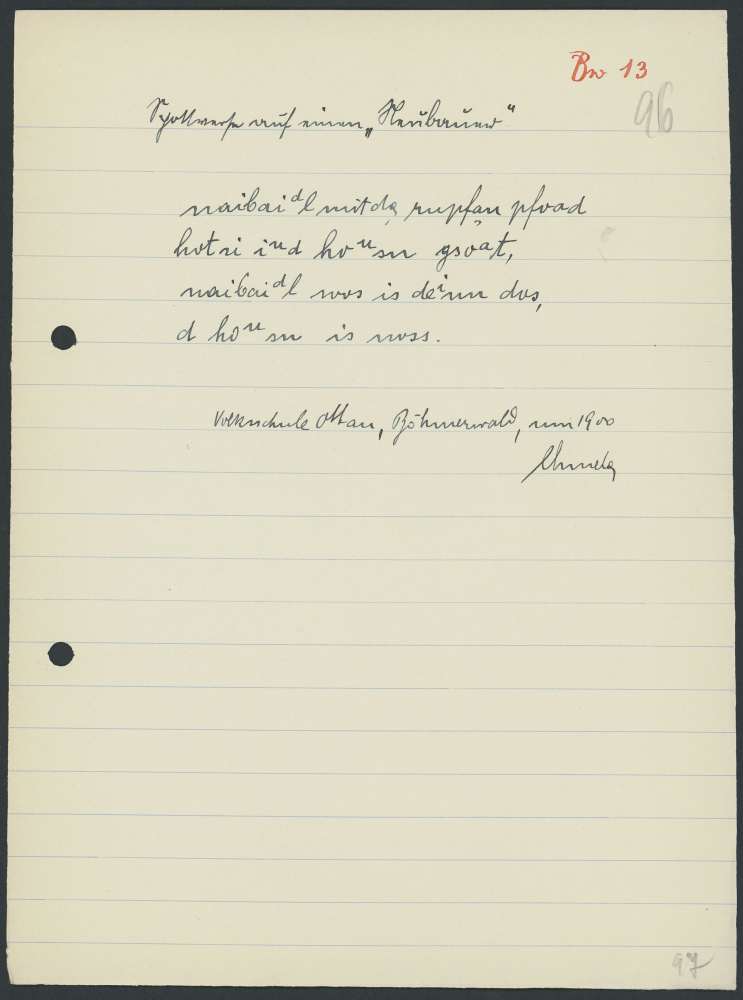 Bw 13
96
Spottverse auf einen „Neubauer"
naibaiᵈl mit dą rupfan pfoad
hot si iⁿd hoᵘsn gsoaᵗt,
naibaiᵈl wos is deⁱnn dos,
d hoᵘsn is noss.
Volksschule Ottau, Böhmerwald, um 1900
97